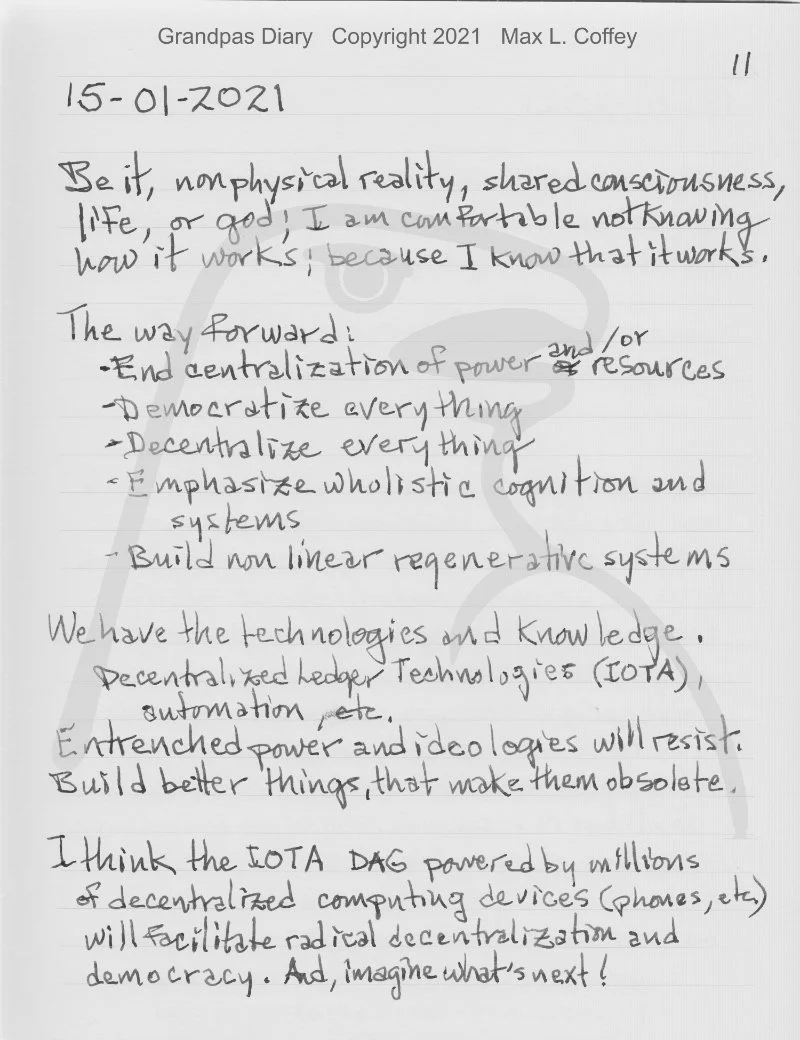 Grandpas Diary Copyright 2021 Max L. Coffey
11
15-01-2021
Be it, nonphysical reality, shared consciousness,
life, or god; I am comfortable not knowing
how it works; because I know that it works.
The way forward:
-End centralization of power and/or resources
-Democratize everything
-Decentralize everything
-Emphasize wholistic cognition and
systems
-Build non linear regenerative systems
We have the technologies and knowledge.
Decentralized Ledger Technologies (IOTA),
automation, etc.
Entrenched power and ideologies will resist.
Build better things, that make them obsolete.
I think the IOTA DAG powered by millions
of decentralized computing devices (phones, etc.)
will facilitate radical decentralization and
democracy. And, imagine what's next!